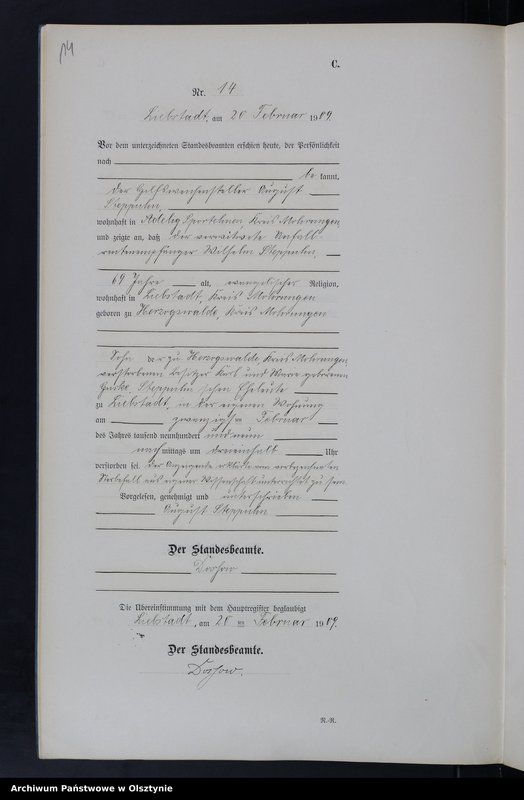 14
C.
Nr. 14
Liebstadt, am 20 Februar 1909.
Vor dem unterzeichneten Standesbeamten erschien heute, der Persönlichkeit
nach
be kannt,
der Hilfsweichensteller August
Steppuhn,
wohnhaft in Adelig Sportehnen, Kreis Mohrungen,
und zeigte an, daß der verwitwete Unfall-
rentenempfänger Wilhelm Steppuhn,
69 Jahre alt, evangelischer Religion,
wohnhaft in Liebstadt, Kreis Mohrungen
geboren zu Herzogswalde, Kreis Mohrungen
Sohn der zu Herzogswalde, Kreis Mohrungen,
verstorbenen Besitzer Karl und geborenen
Steppuhn'schen Eheleute
zu Liebstadt, in der eigenen Wohnung
am zwanzigsten Februar
des Jahres tausend neunhundert und neun
nachmittags um dreieinhalb Uhr
verstorben sei. Der Anzeigende erklärte von vorbezeichneten
Sterbefall aus eigener Wissenschaft unterrichtet zu sein.
Vorgelesen, genehmigt und unterschrieben
August Steppuhn
Der Standesbeamte.
Die Übereinstimmung mit dem Hauptregister beglaubigt
Liebstadt, am 20 ten Februar 1909.
Der Standesbeamte.
R.-R.
Archiwum Państwowe w Olsztynie